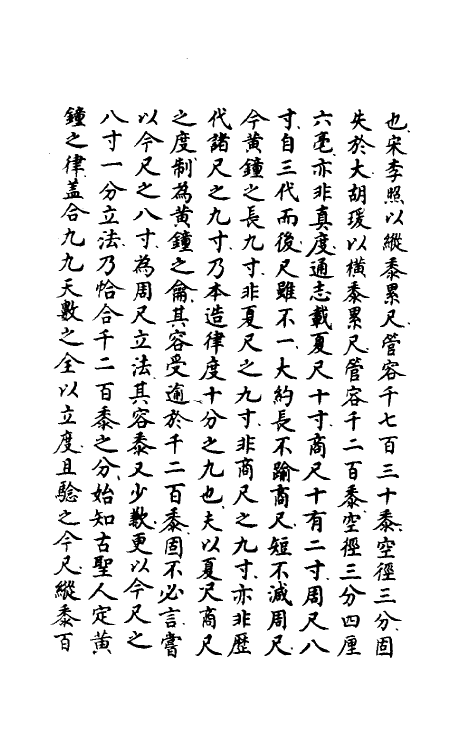 也宋李照以縱黍累尺管容千七百三十黍空徑三分固
失於大胡瑗以橫黍累尺管容千二百黍空徑三分四厘
六毫亦非真度通志載夏尺十寸商尺十有二寸周尺八
寸自三代而後尺雖不一大約長不踰商尺短不減周尺
今黃鐘之長九寸非夏尺之九寸非商尺之九寸亦非歷
代諸尺之九寸乃本造律度十分之九也夫以夏尺商尺
之度制為黃鐘之龠其容受逾於千二百黍固不必言嘗
以今尺之八寸為周尺立法其容黍又少歉更以今尺之
八寸一分立法乃恰合千二百黍之分始知古聖人定黃
鐘之律葢合九九天數之全以立度且驗之今尺縱黍百